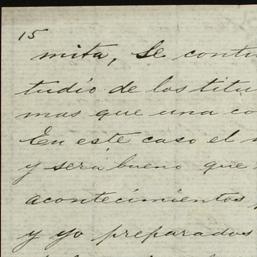 15
mita, se conti
tudio de los titu
mas que una co
En este caso el
y será bueno que
acontecimientos
y yo preparados